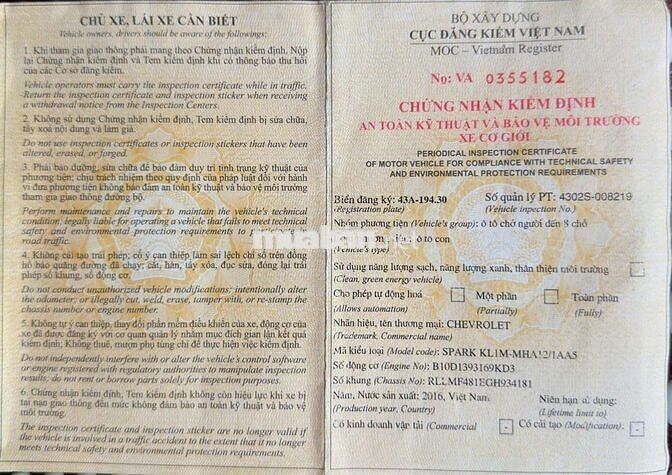 CHỦ XE, LÁI XE CẦN BIẾT
Vehicle owners, drivers should be aware of the followings:
1. Khi tham gia giao thông phải mang theo Chứng nhận kiểm định. Nộp
lại Chứng nhận kiểm định và Tem kiểm định khi có thông báo thu
hồi của các Cơ sở đăng kiểm.
Vehicle operators must carry the inspection certificate while in traffic.
Return the inspection certificate and inspection sticker when receiving
a withdrawal notice from the Inspection Centers.
2. Không sử dụng Chứng nhận kiểm định, Tem kiểm định bị sửa chữa,
tẩy xoá nội dung và làm giả.
Do not use inspection certificates or inspection stickers that have been
altered, erased, or forged.
3. Phải bảo dưỡng, sửa chữa để bảo đảm duy trì tình trạng kỹ thuật của
phương tiện; chịu trách nhiệm theo quy định của pháp luật đối với hành
vi đưa phương tiện không bảo đảm an toàn kỹ thuật và bảo vệ môi trường
tham gia giao thông đường bộ.
Perform maintenance and repairs to maintain the vehicle's technical
condition; legally liable for operating a vehicle that fails to meet technical
safety and environmental protection requirements to p
road traffic.
4. Không cải tạo trái phép; cố ý can thiệp làm sai lệch chỉ số trên đồng
hồ báo quãng đường đã chạy; cắt, hàn, tẩy xóa, đục sửa, đóng lại trái
phép số khung, số động cơ.
Do not conduct unauthorized vehicle modifications; intentionally alter
the odometer; or illegally cut, weld, erase, tamper with, or re-stamp the
chassis number or engine number.
5. Không tự ý can thiệp, thay đổi phần mềm điều khiển của xe, động cơ của
xe đã được đăng ký với cơ quan quản lý nhằm mục đích gian lận kết quả
kiểm định; Không thuê, mượn phụ tùng chỉ để thực hiện việc kiểm định.
Do not independently interfere with or alter the vehicle's control software
or engine registered with regulatory authorities to manipulate inspection
results; do not rent or borrow parts solely for inspection purposes.
6. Chứng nhận kiểm định, Tem kiểm định không còn hiệu lực khi xe bị
tai nạn giao thông đến mức không đảm bảo an toàn kỹ thuật và bảo vệ
môi trường.
The inspection certificate and inspection sticker are no longer valid if
the vehicle is involved in a traffic accident to the extent that it no longer
meets technical safety and environmental protection requirements.
BỘ XÂY DỰNG
CỤC ĐĂNG KIỂM VIỆT NAM
MOC – Vietnam Register
No: VA 0355182
CHỨNG NHẬN KIỂM ĐỊNH
AN TOÀN KỸ THUẬT VÀ BẢO VỆ MÔI TRƯỜNG
XE CƠ GIỚI
PERIODICAL INSPECTION CERTIFICATE
OF MOTOR VEHICLE FOR COMPLIANCE WITH TECHNICAL SAFETY
AND ENVIRONMENTAL PROTECTION REQUIREMENTS
Biển đăng ký: 43A-194.30 Số quản lý PT: 4302S-008219
(Registration plate) (Vehicle inspection No.)
Nhóm phương tiện (Vehicle's group): ô tô chở người đến 8 chỗ
ô tô con
(Vehicle's type)
Sử dụng năng lượng sạch, năng lượng xanh, thân thiện môi trường
(Clean, green energy vehicle)
Cho phép tự động hoá Một phần Toàn phần
(Allows automation) (Partially) (Fully)
Nhãn hiệu, tên thương mại: CHEVROLET
(Trademark, Commercial name)
Mã kiểu loại (Model code): SPARK KL1M-MHA12/1AA5
Số động cơ (Engine No): B10D1393169KD3
Số khung (Chassis No): RLLMF481EGH934181
Năm, Nước sản xuất: 2016, Việt Nam Niên hạn sử dụng:
(Production year, Country) (Lifetime limit to)
Có kinh doanh vận tải (Commercial - Có cải tạo (Modification): -